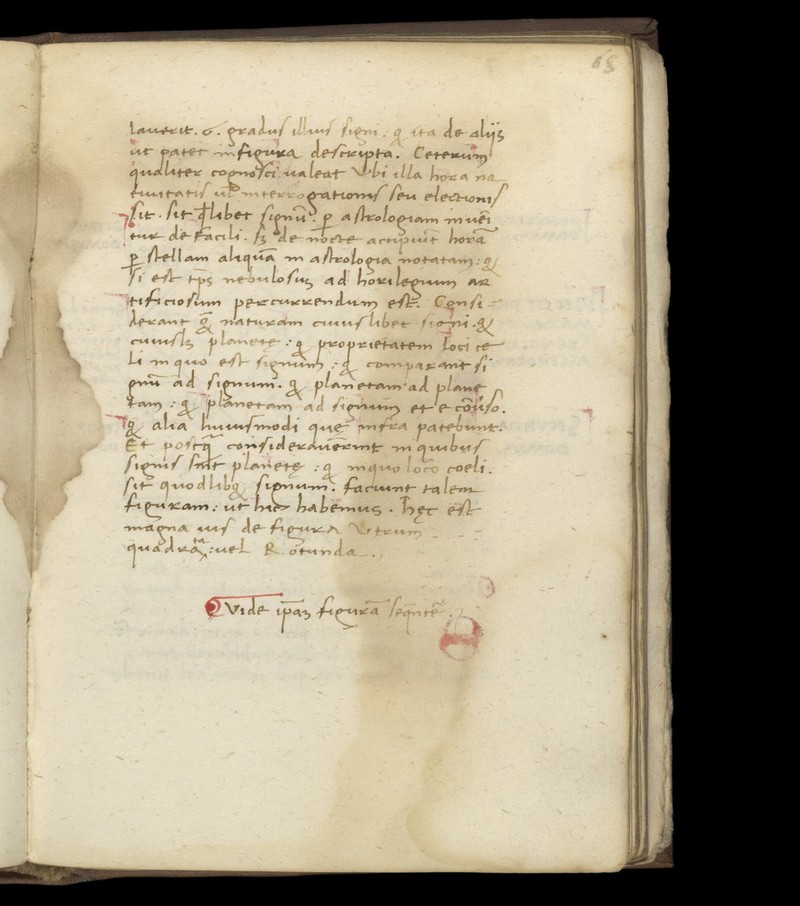 65
lauerit. 6. gradus illius signi: & ita de aliis
ut patet in figura descripta. Ceterum
qualiter cognosci valeat Vbi illa hora na
tiuitatis ul' interrogationis seu electionis
sit. sit q̄libet signū. p̱ astrologiam inuēi
tur de facili. Sꝫ de nocte accipiūt horā
p̱ stellam aliquā in astrologia notatam: &
si est tp̄s nebulosum ad horilegium ar
tificiosum percurrendum est. Consi-
derant naturam cuiuslibet signi. &
cuiuslꝫ planetę: & proprietatem loci ce
li in quo est signum: & comparant si
gnū ad signum. & planetam ad plane
tam: & planetam ad signum et e cōuerso.
& alia huiusmodi quę infra patebunt.
Et postq̄ considerauerint in quibus
signis sint planetę: & in quo loco coeli.
sit quodlibꝫ signum. faciunt talem
figuram: ut hic habemus. Hęc est
magna uis de figura Vtrum
quadrata: uel Rotunda.
Vide ip̄am figurā seq̄ntē.